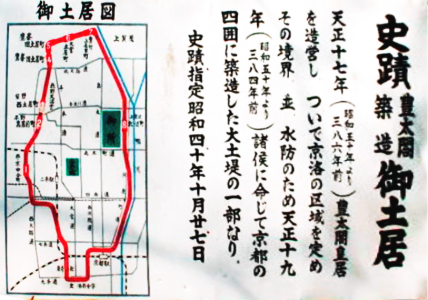 史蹟 豊太閤築造 御土居
天正十七年(昭和五十年より三八六年前)豊太閤皇居
を造営し ついで京洛の区域を定め
その境界 並 水防のため天正十九
年(昭和五十年より三八四年前)諸侯に命じて京都の
四囲に築造した大土堤の一部なり
史蹟指定昭和四十年十月廿七日
御土居図
御所